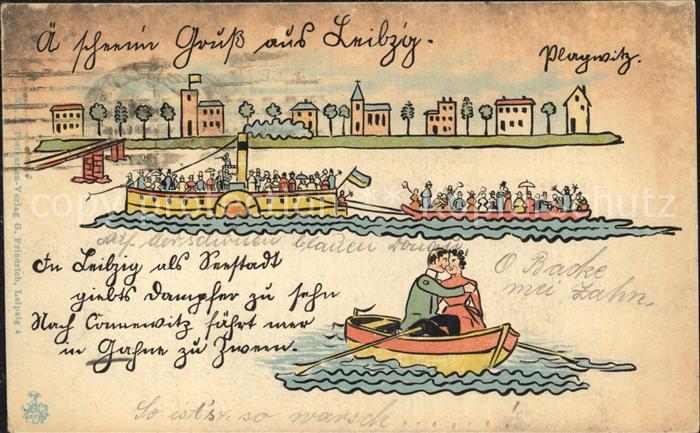 Ä scheenn Gruß aus Leibzig.
Plagwitz.
Auf der schönen blauen Donau
In Leibzig als Seestadt
giebts Dampfer zu sehn
Nach Connewitz fährt mer
in Gahne zu Zween.
O Backe
mei Zahn.
So ist's so warsch . . . . . . !
Postkarten-Verlag G. Friedrich, Leipzig 4